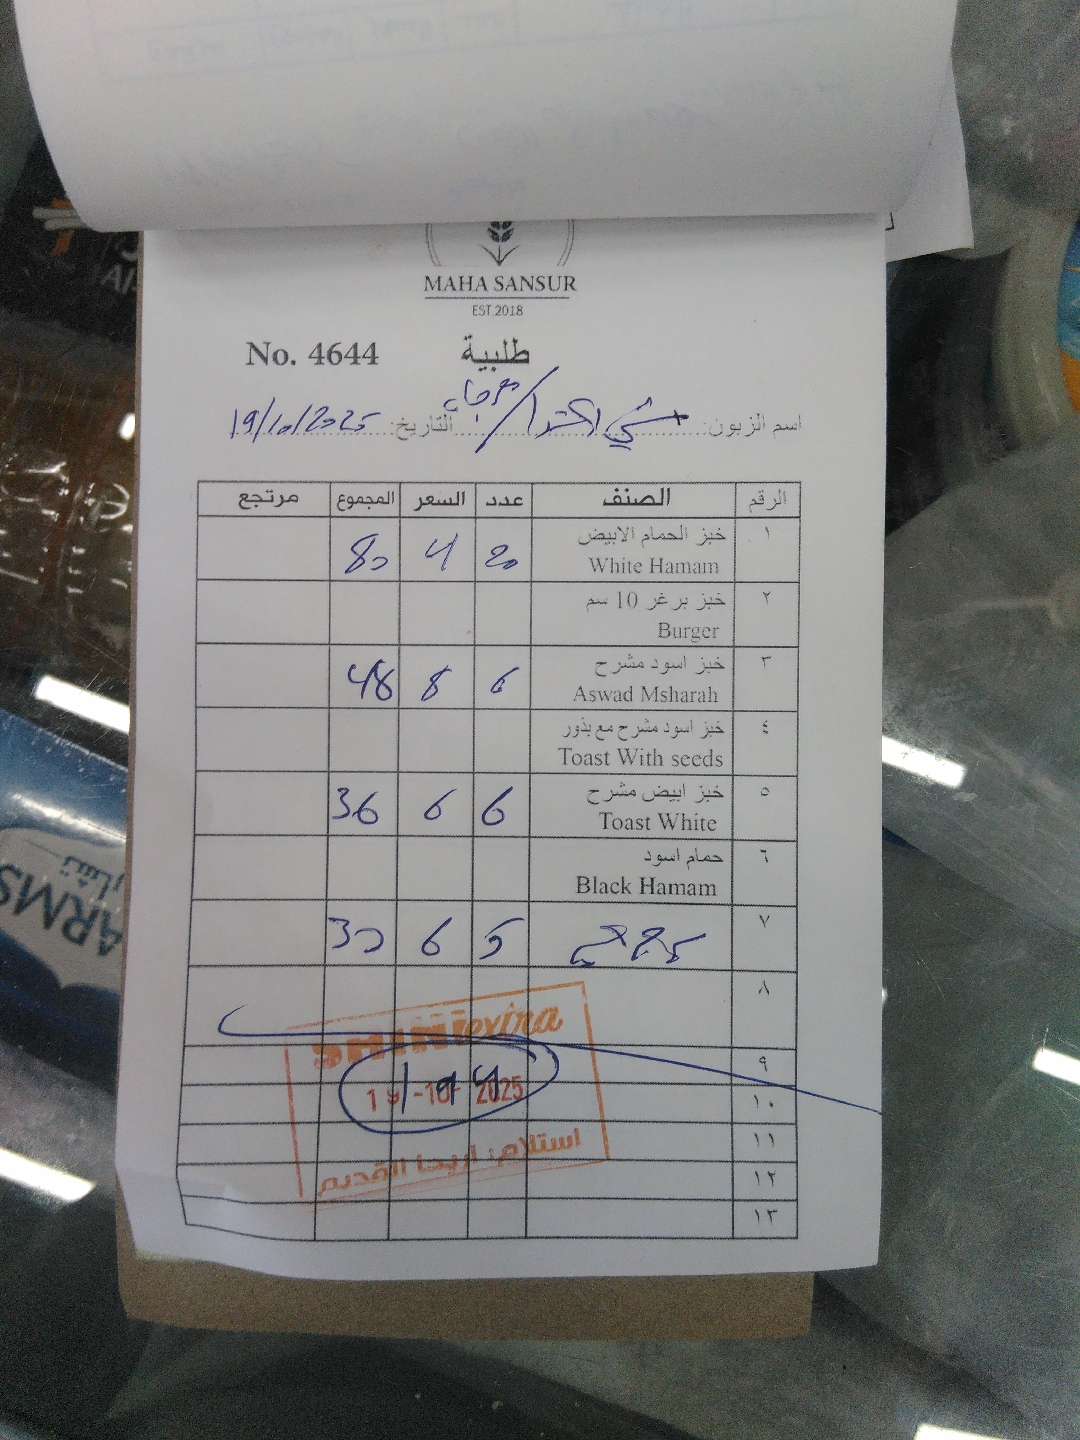 MAHA SANSUR
EST.2018
No. 4644 طلبية
اسم الزبون: التاريخ: 19/10/2025
الرقم الصنف عدد السعر المجموع مرتجع
١ خبز الحمام الابيض 20 4 80
White Hamam
٢ خبز برغر 10 سم
Burger
٣ خبز اسود مشرح 6 8 48
Aswad Msharah
٤ خبز اسود مشرح مع بذور
Toast With seeds
٥ خبز ابيض مشرح 6 6 36
Toast White
٦ حمام اسود
Black Hamam
٧ 5 6 30
٨
٩
194
١٠
١١
١٢
١٣
MINI extra
19-10-2025
استلام: اريحا القديم
ARMS